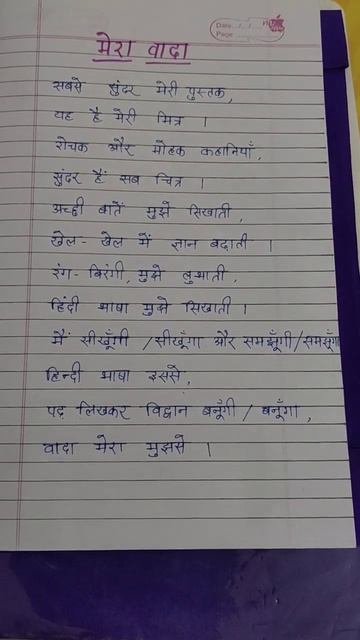 Date
Page
मेरा वादा
सबसे सुंदर मेरी पुस्तक,
यह है मेरी मित्र ।
रोचक और मोहक कहानियाँ,
सुंदर हैं सब चित्र ।
अच्छी बातें मुझे सिखाती,
खेल - खेल में ज्ञान बढाती ।
रंग - बिरंगी, मुझे लुभाती,
हिंदी भाषा मुझे सिखाती ।
मैं सीखूँगी / सीखूँगा और समझूँगी / समझूँगा
हिन्दी भाषा इससे,
पढ़ लिखकर विद्वान बनूँगी / बनूँगा,
वादा मेरा मुझसे ।